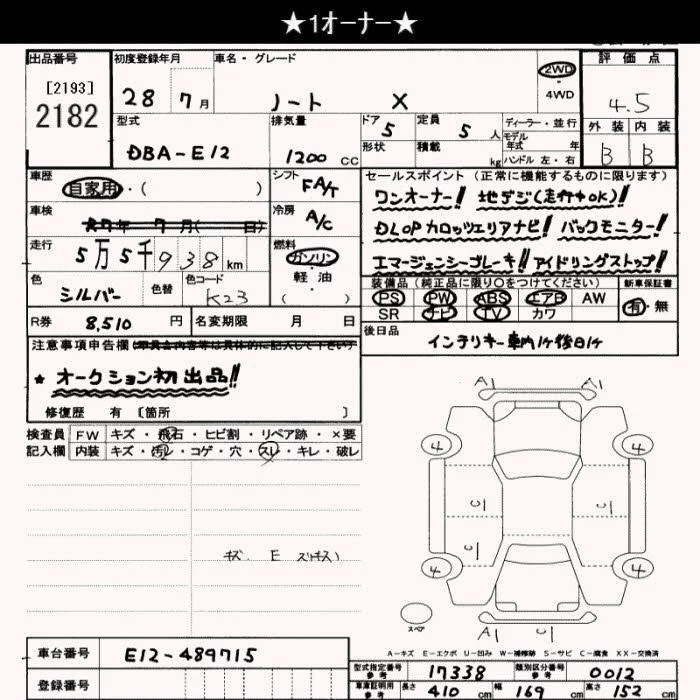 ★1オーナー★
出品番号 初度登録年月 車名・グレード 2WD 評価点
[2193]
2182 28 7月 ノート X 4WD 4.5
型式 排気量 ドア 5 定員 5人 ディーラー・並行 外装 内装
DBA-E12 1200cc 形状 積載 kg モデル年式 年 B B
ハンドル 左・右
車歴 シフト セールスポイント (正常に機能するものに限ります)
自家用・( ) FA/T ワンオーナー!! 地デジ(走行中OK)!!
車検 7年 7月( 日) 冷房 A/C DLOPカロッツェリアナビ! バックモニター!
走行 5万5千938km 燃料 ガソリン エマージェンシーブレーキ!! アイドリングストップ!!
色 シルバー 色替 色コード K23 軽油 ( )
装備品 (純正品に限り○をつけてください) 新車保証書
PS PW ABS エアB AW 有・無
SR ナビ TV カワ
R券 8,510円 名変期限 月 日
後日品 インテリキー車内1ケ後日1ケ
注意事項申告欄
★オークション初出品!!
修復歴 有 [箇所 ]
検査員 FW キズ・飛石・ヒビ割・リペア跡・×要
記入欄 内装 キズ・汚レ・コゲ・穴・スレ・キレ・破レ
A1 A1
4 4
U1 U1
U1
4 4
キズ E ズ(キス)
スペア
A1 U1
A-キズ E-エクボ U-凹み W-補修跡 S-サビ C-腐食 XX-交換済
車台番号 E12-489715
登録番号
型式指定番号 参考 17338 類別区分番号 参考 0012
車庫証明用 参考 長さ 410cm 幅 169cm 高さ 152cm